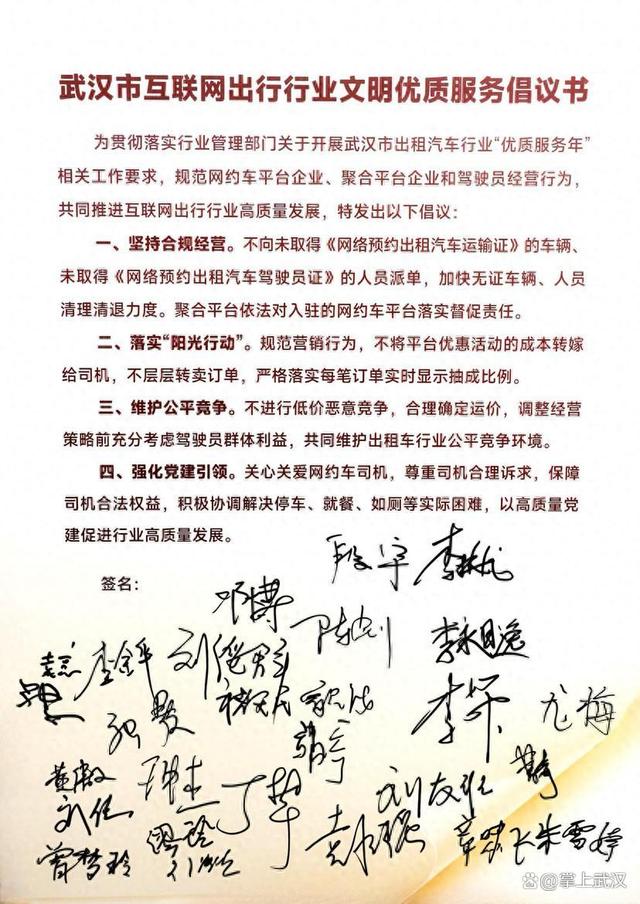 武汉市互联网出行行业文明优质服务倡议书
为贯彻落实行业管理部门关于开展武汉市出租汽车行业“优质服务年”
相关工作要求，规范网约车平台企业、聚合平台企业和驾驶员经营行为，
共同推进互联网出行行业高质量发展，特发出以下倡议：
一、坚持合规经营。不向未取得《网络预约出租汽车运输证》的车辆、
未取得《网络预约出租汽车驾驶员证》的人员派单，加快无证车辆、人员
清理清退力度。聚合平台依法对入驻的网约车平台落实督促责任。
二、落实“阳光行动”。规范营销行为，不将平台优惠活动的成本转嫁
给司机，不层层转卖订单，严格落实每笔订单实时显示抽成比例。
三、维护公平竞争。不进行低价恶意竞争，合理确定运价，调整经营
策略前充分考虑驾驶员群体利益，共同维护出租车行业公平竞争环境。
四、强化党建引领。关心关爱网约车司机，尊重司机合理诉求，保障
司机合法权益，积极协调解决停车、就餐、如厕等实际困难，以高质量党
建促进行业高质量发展。
签名：
段宇
邓博
陈刚
李永逸
李荣
尤梅
刘友旺
曾梦玲
朱雪婷
@掌上武汉